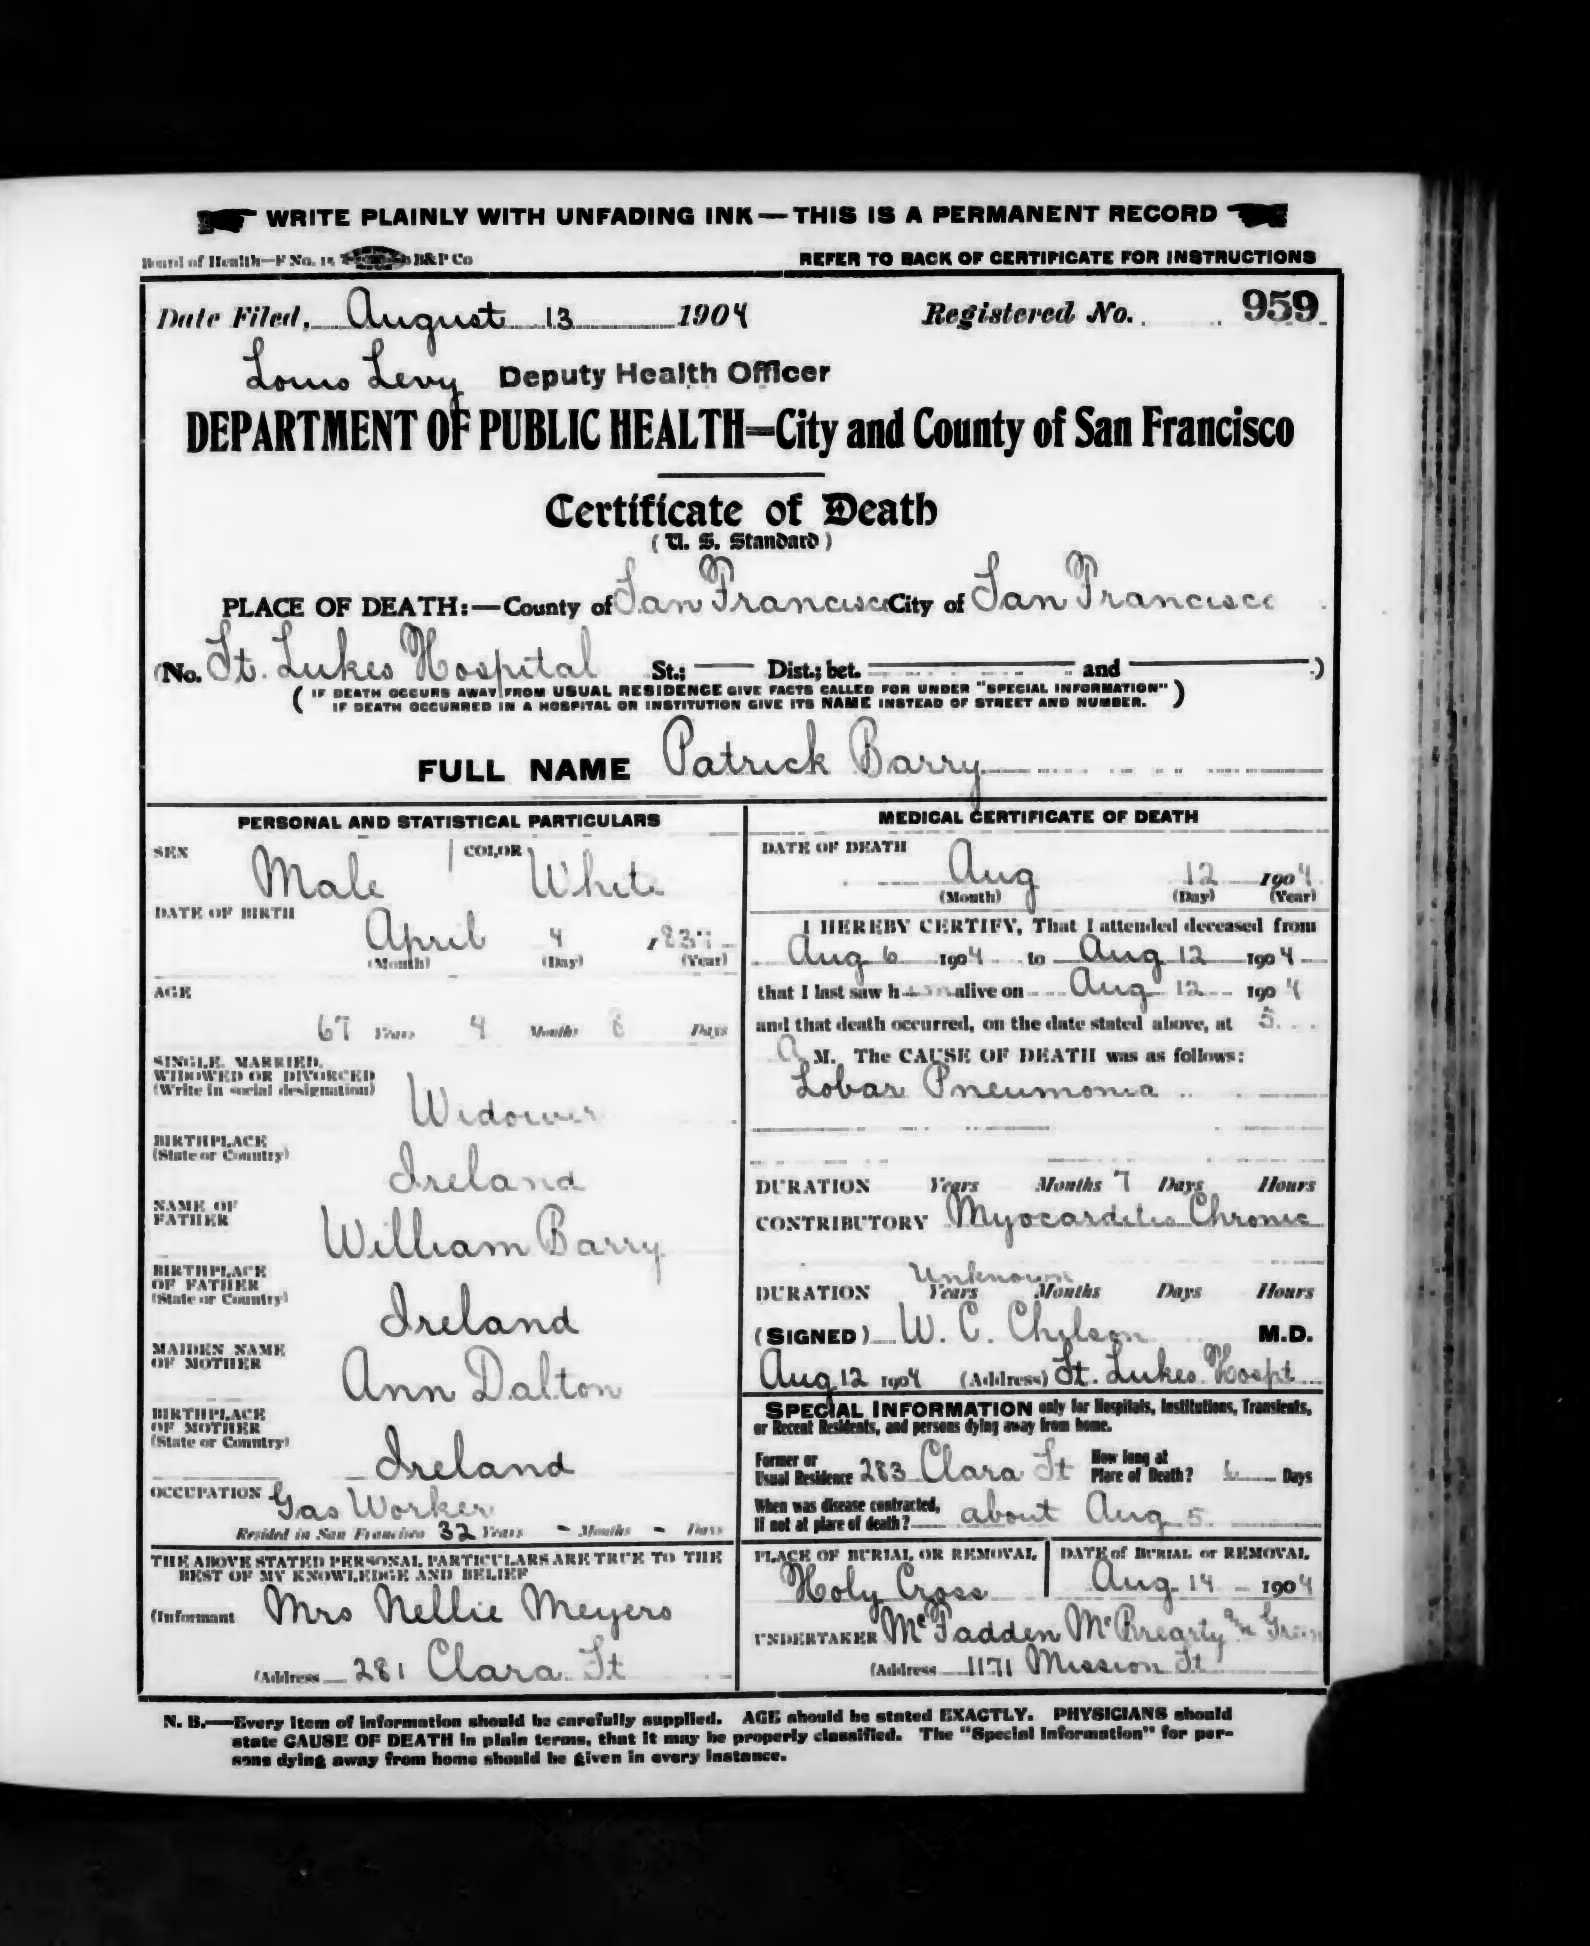 WRITE PLAINLY WITH UNFADING INK — THIS IS A PERMANENT RECORD
Board of Health—F No. 15 B&P Co REFER TO BACK OF CERTIFICATE FOR INSTRUCTIONS
Date Filed, August 13 1904 Registered No. 959
Louis Levy Deputy Health Officer
DEPARTMENT OF PUBLIC HEALTH=City and County of San Francisco
Certificate of Death
(U. S. Standard)
PLACE OF DEATH:—County of San Francisco City of San Francisco
(No. St. Lukes Hospital St.; Dist.; bet. and )
(IF DEATH OCCURS AWAY FROM USUAL RESIDENCE GIVE FACTS CALLED FOR UNDER "SPECIAL INFORMATION"
IF DEATH OCCURRED IN A HOSPITAL OR INSTITUTION GIVE ITS NAME INSTEAD OF STREET AND NUMBER.)
FULL NAME Patrick Barry
PERSONAL AND STATISTICAL PARTICULARS
SEX Male COLOR White
DATE OF BIRTH
April 4 1837
(Month) (Day) (Year)
AGE
67 Years 4 Months 8 Days
SINGLE, MARRIED,
WIDOWED OR DIVORCED
(Write in social designation)
Widower
BIRTHPLACE
(State or Country)
Ireland
NAME OF
FATHER
William Barry
BIRTHPLACE
OF FATHER
(State or Country)
Ireland
MAIDEN NAME
OF MOTHER
Ann Dalton
BIRTHPLACE
OF MOTHER
(State or Country)
Ireland
OCCUPATION Gas Worker
Resided in San Francisco 32 Years - Months - Days
THE ABOVE STATED PERSONAL PARTICULARS ARE TRUE TO THE
BEST OF MY KNOWLEDGE AND BELIEF
(Informant Mrs Nellie Meyers
(Address 281 Clara St
MEDICAL CERTIFICATE OF DEATH
DATE OF DEATH
Aug 12 1904
(Month) (Day) (Year)
I HEREBY CERTIFY, That I attended deceased from
Aug 6 1904 to Aug 12 1904
that I last saw him alive on Aug 12 1904
and that death occurred, on the date stated above, at 5
A M. The CAUSE OF DEATH was as follows:
Lobar Pneumonia
DURATION Years Months 7 Days Hours
CONTRIBUTORY Myocarditis Chronic
Unknown
DURATION Years Months Days Hours
(SIGNED) W. C. Chilson M.D.
Aug 12 1904 (Address) St. Lukes Hospt
SPECIAL INFORMATION only for Hospitals, Institutions, Transients,
or Recent Residents, and persons dying away from home.
Former or
Usual Residence 283 Clara St How long at
Place of Death? 6 Days
When was disease contracted,
If not at place of death? about Aug 5
PLACE OF BURIAL OR REMOVAL DATE of BURIAL or REMOVAL
Holy Cross Aug 14 1904
UNDERTAKER McFadden McBrearty Green
(Address 1171 Mission St
N. B.—Every item of information should be carefully supplied. AGE should be stated EXACTLY. PHYSICIANS should
state CAUSE OF DEATH in plain terms, that it may be properly classified. The "Special Information" for per-
sons dying away from home should be given in every instance.